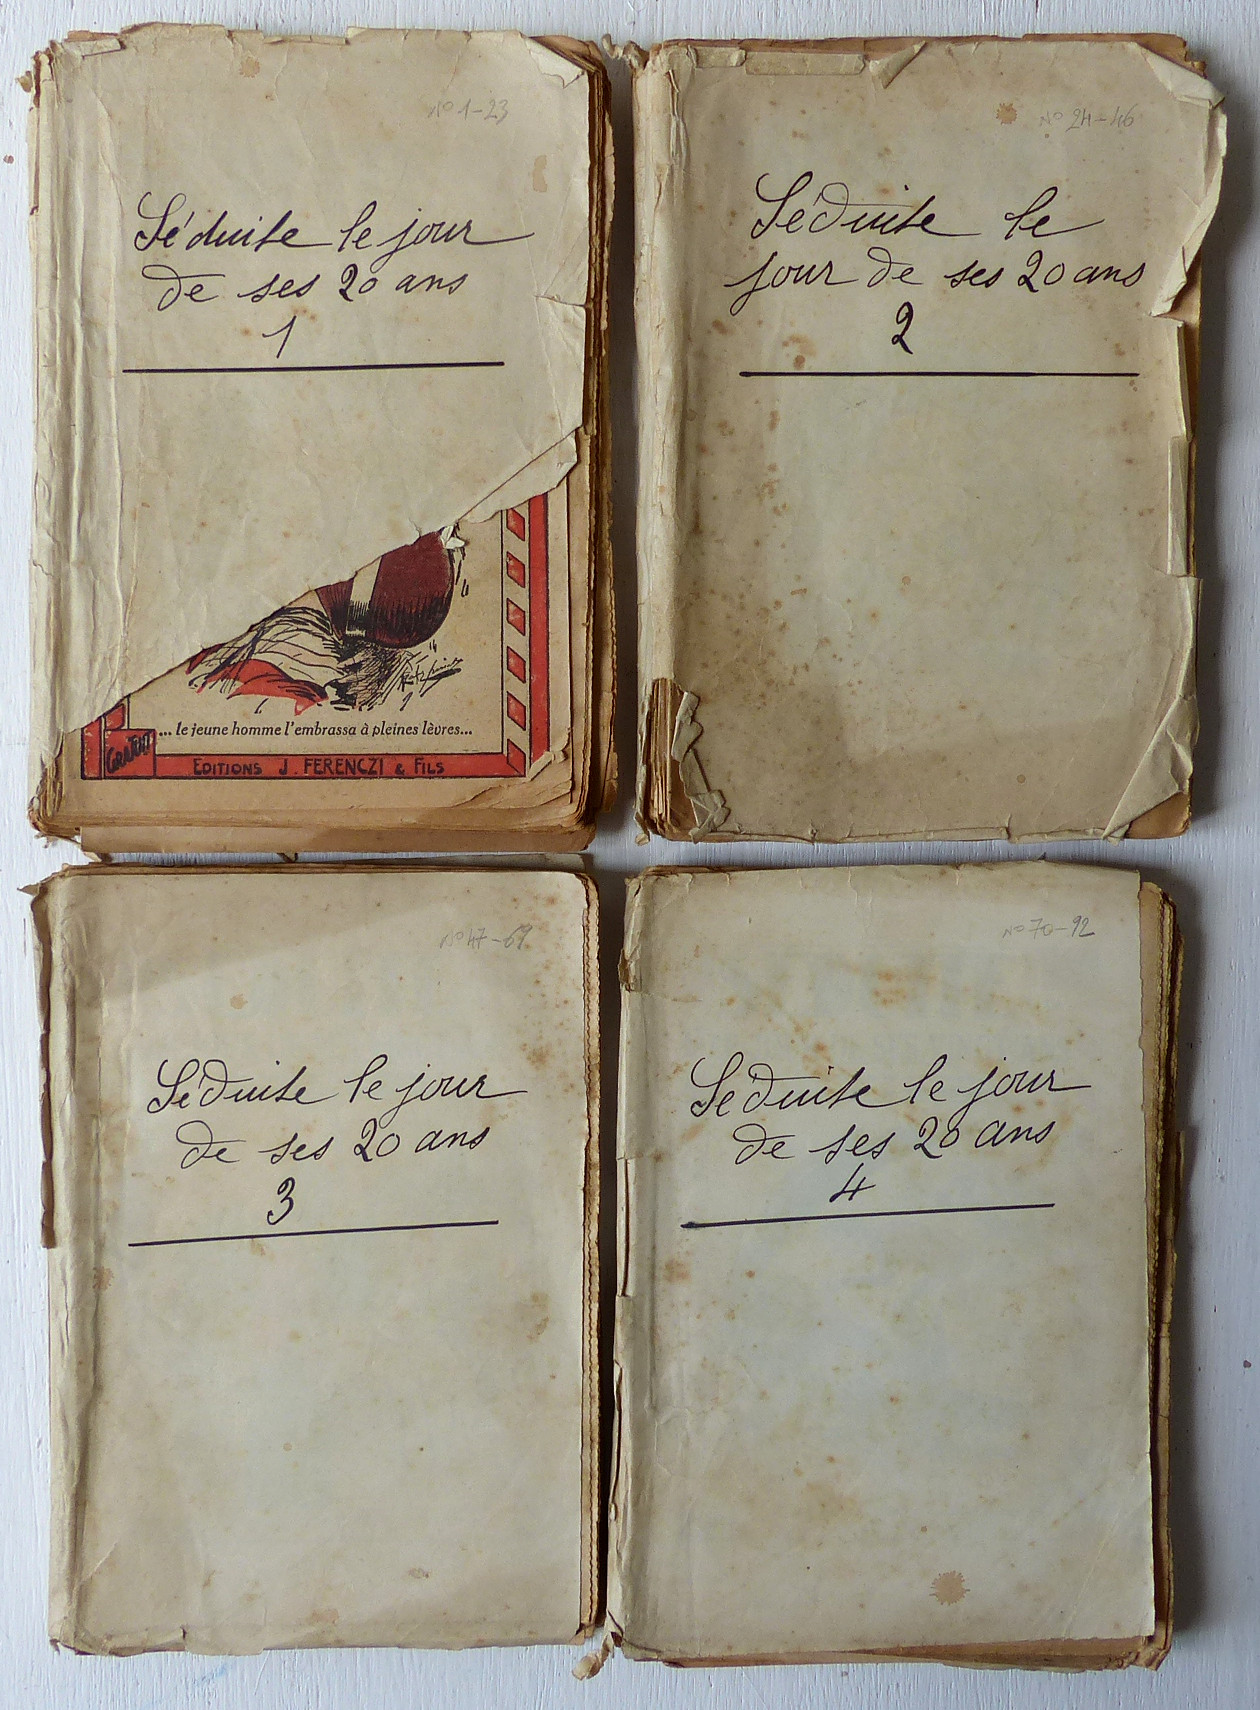 N° 1-23
Séduite le jour
de ses 20 ans
1
... le jeune homme l'embrassa à pleines lèvres...
GRATUIT
EDITIONS J. FERENCZI & FILS
N° 24-46
Séduite le
jour de ses 20 ans
2
N° 47-69
Séduite le jour
de ses 20 ans
3
N° 70-92
Séduite le jour
de ses 20 ans
4